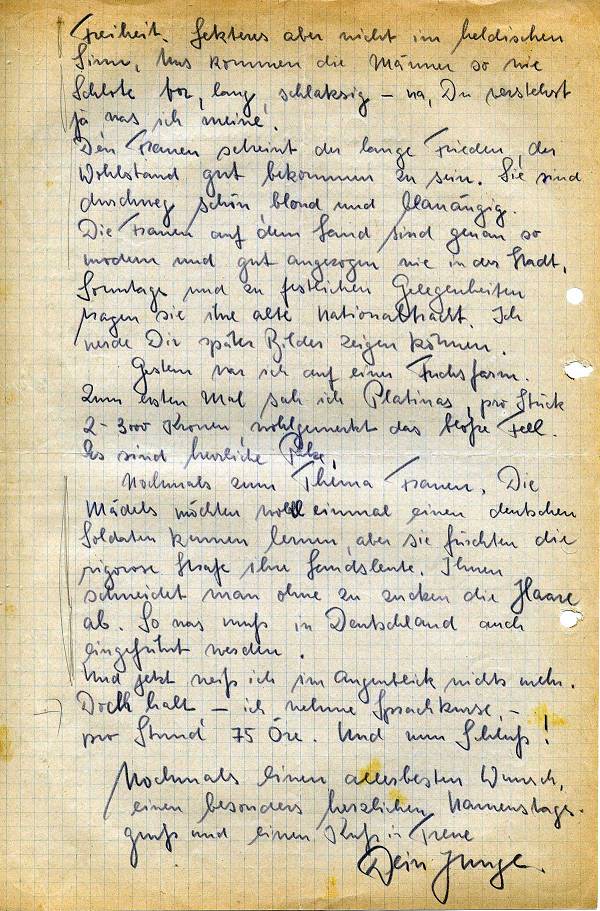 Freiheit. Letzteres aber nicht im heldischen
Sinn, uns kommen die Männer so wie
Schlote vor, lang, schlaksig – na, Du verstehst
ja was ich meine.
Den Frauen scheint der lange Frieden, der
Wohlstand gut bekommen zu sein. Sie sind
durchweg schön blond und blauäugig.
Die Frauen auf dem Land sind genau so
modern und gut angezogen wie in der Stadt,
Sonntags und zu festlichen Gelegenheiten
tragen sie ihre alte Nationaltracht. Ich
werde Dir später Bilder zeigen können.
Gestern war ich auf einer Fuchsfarm.
Zum ersten Mal sah ich Platinas, pro Stück
2-3000 Kronen wohlgemerkt das bloße Fell.
Es sind herrliche Pelze.
Nochmals zum Thema Frauen. Die
Mädels möchten wohl einmal einen deutschen
Soldaten kennen lernen, aber sie fürchten die
rigorose Strafe ihre Landsleute. Ihnen
schneidet man ohne zu zucken die Haare
ab. So was muß in Deutschland auch
eingeführt werden.
Und jetzt weiß ich im Augenblick nichts mehr.
Doch halt – ich nehme Sprachkurse, –
pro Stund 75 Öre. Und nun Schluß!
Nochmals einen allerbesten Wunsch,
einen besonders herzlichen Namenstags-
gruß und einen Kuß in Treue
Dein Junge.